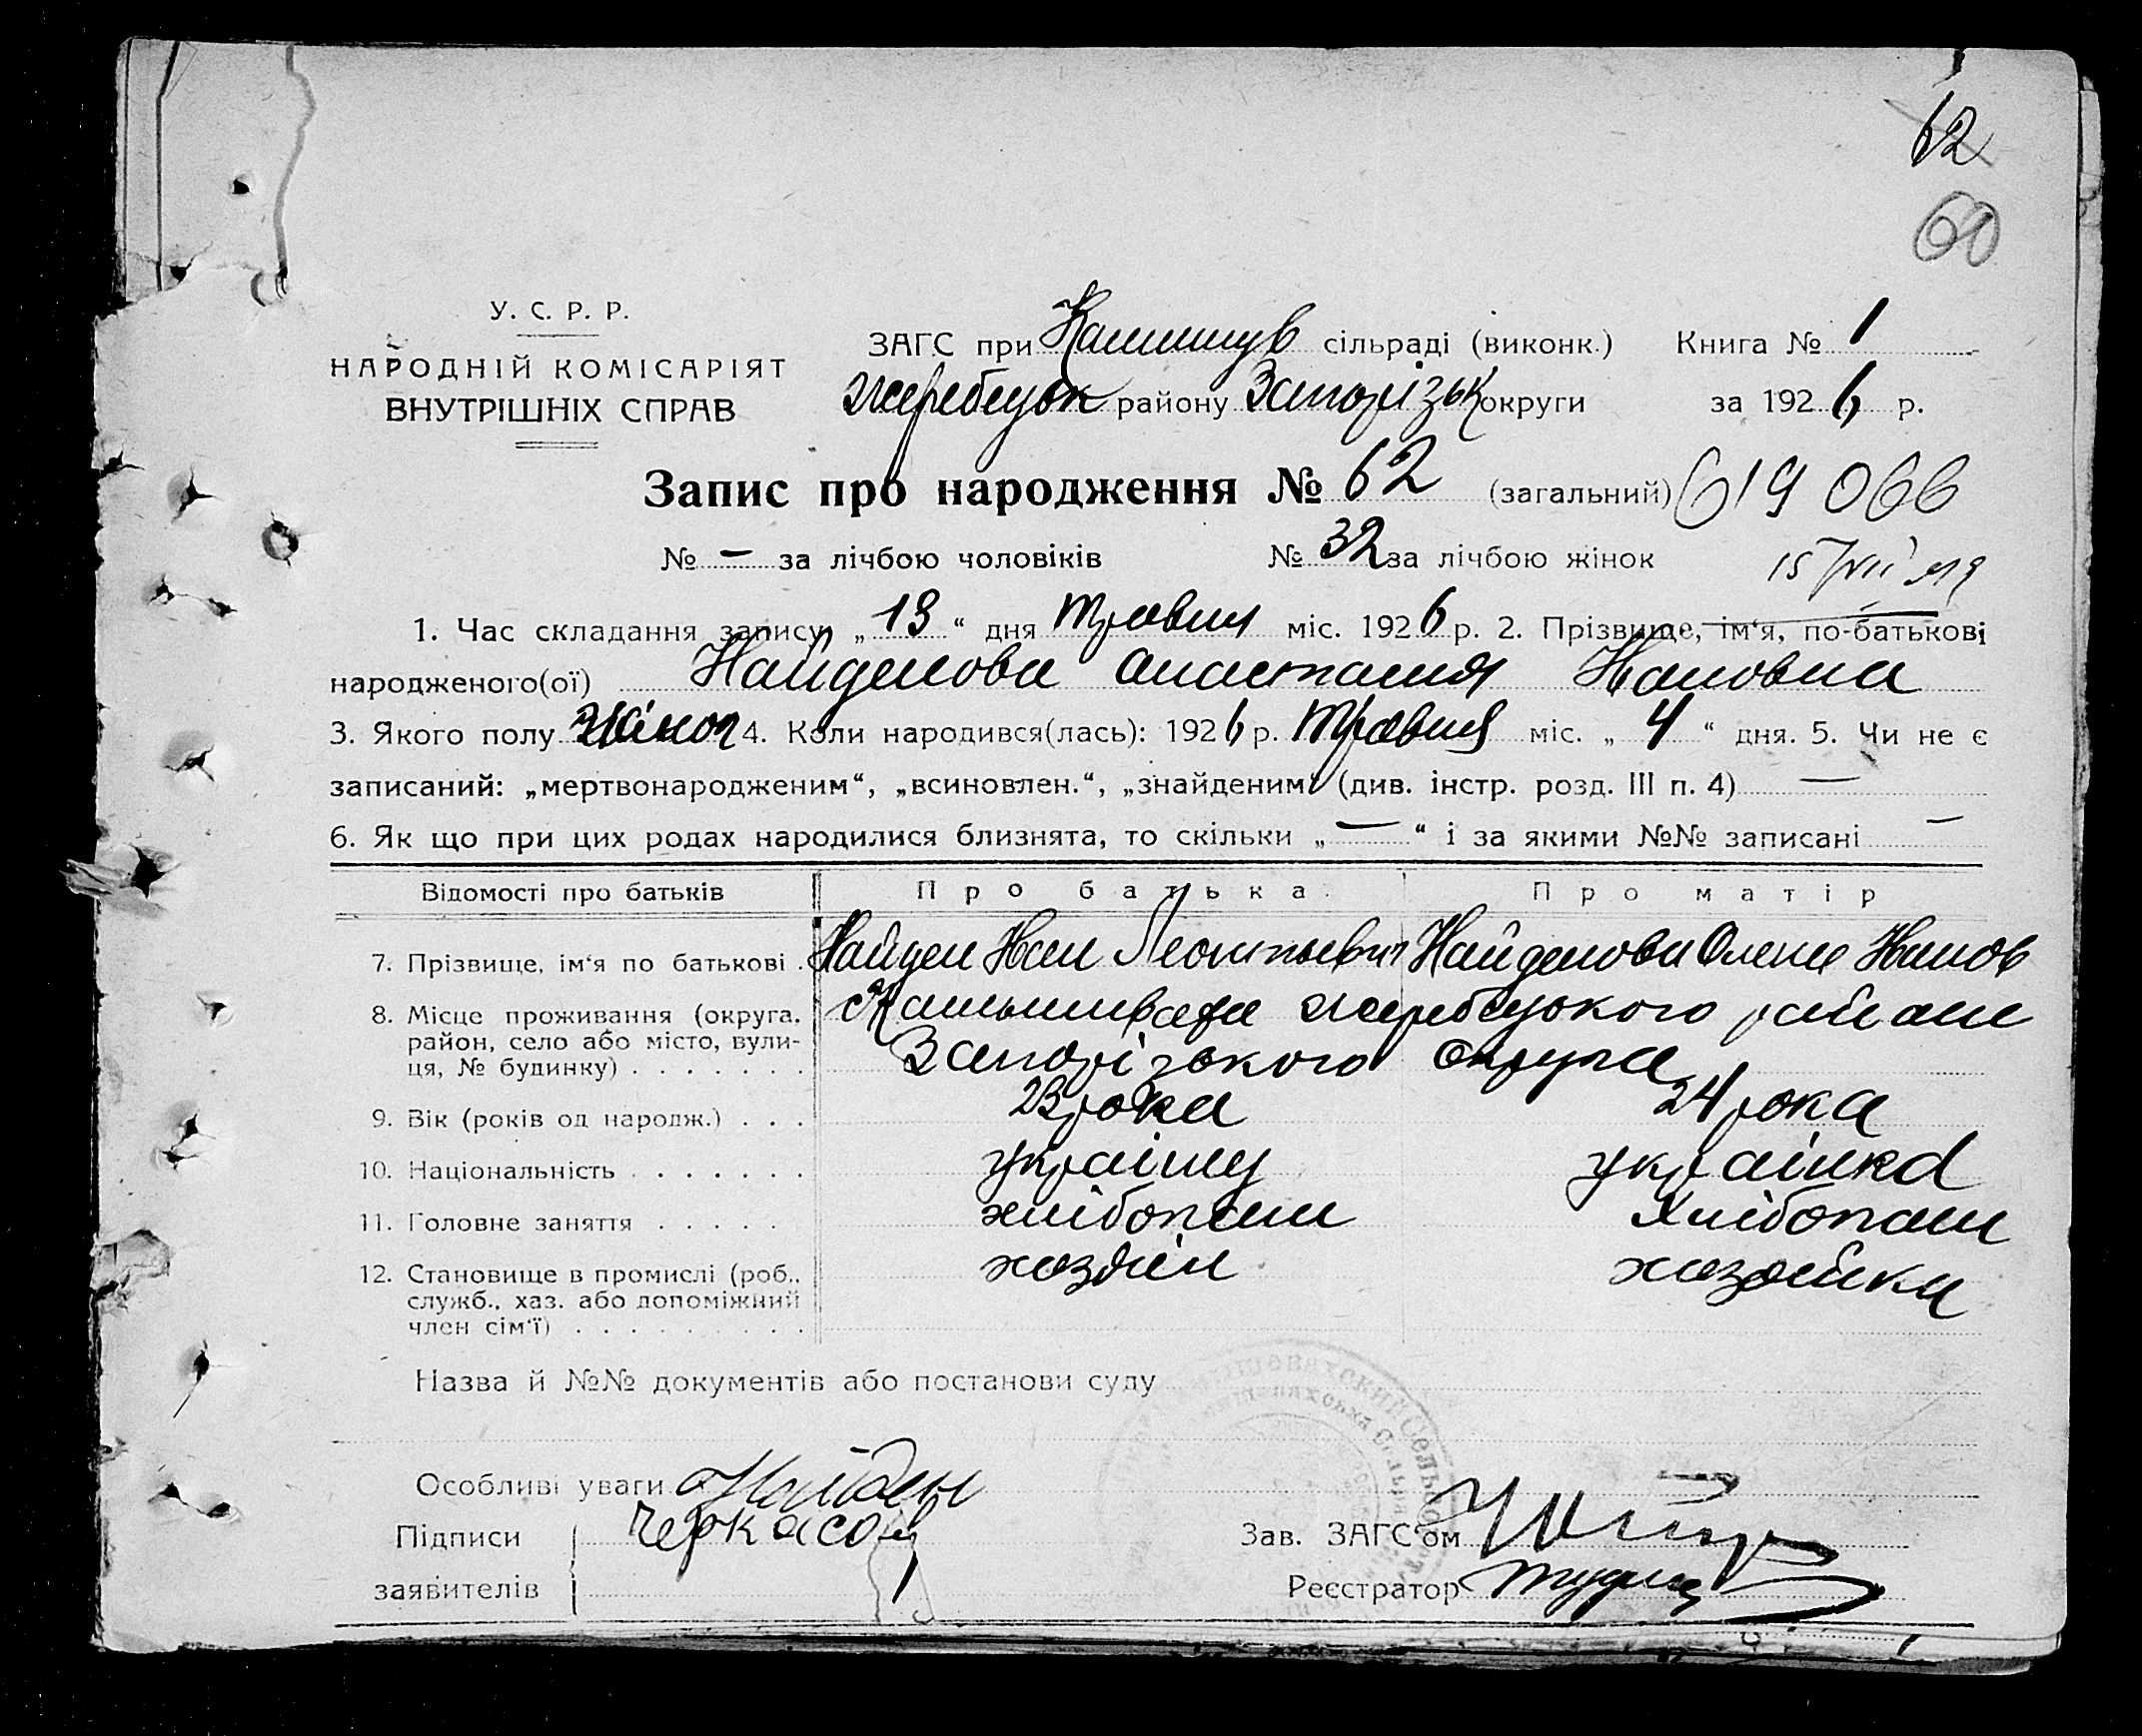 62
60
У. С. Р. Р.
НАРОДНІЙ КОМІСАРІЯТ
ВНУТРІШНІХ СПРАВ
ЗАГС при Камишув сільраді (виконк.) Книга № 1
жеребецьк району Запорізьк округи за 1926 р.
Запис про народження № 62 (загальний) 619 066
№ — за лічбою чоловіків № 32 за лічбою жінок
1. Час складання запису „13“ дня травня міс. 1926 р. 2. Прізвище, ім‘я, по-батькові
народженого(ої) Найденова Анастасия Ивановна
3. Якого полу жіноч 4. Коли народився(лась): 1926 р. травня міс. „4“ дня. 5. Чи не є
записаний: „мертвонародженим“, „всиновлен.“, „знайденим“ (див. інстр. розд. III п. 4) —
6. Як що при цих родах народилися близнята, то скільки „—“ і за якими №№ записані —
Відомості про батьків Про батька. Про матір
7. Прізвище, ім‘я по батькові . Найден Иван Леонтьевич Найденова Олена Иванов
8. Місце проживання (округа, район, село або місто, вулиця, № будинку) . . . . . . . жеребецького района
Запорізького округа
9. Вік (років од народж.) . . . 23 рока 24 рока
10. Національність . . . . . . . українц українка
11. Головне заняття . . . . . хлібопаш Хлібопаш
12. Становище в промислі (роб., служб., хаз. або допоміжний член сім‘ї) . . . . . . . . . хозяін хозяйка
Назва й №№ документів або постанови суду
Особливі уваги Найден
Підписи Черкасов Зав. ЗАГС‘ом
заявителів Реєстратор